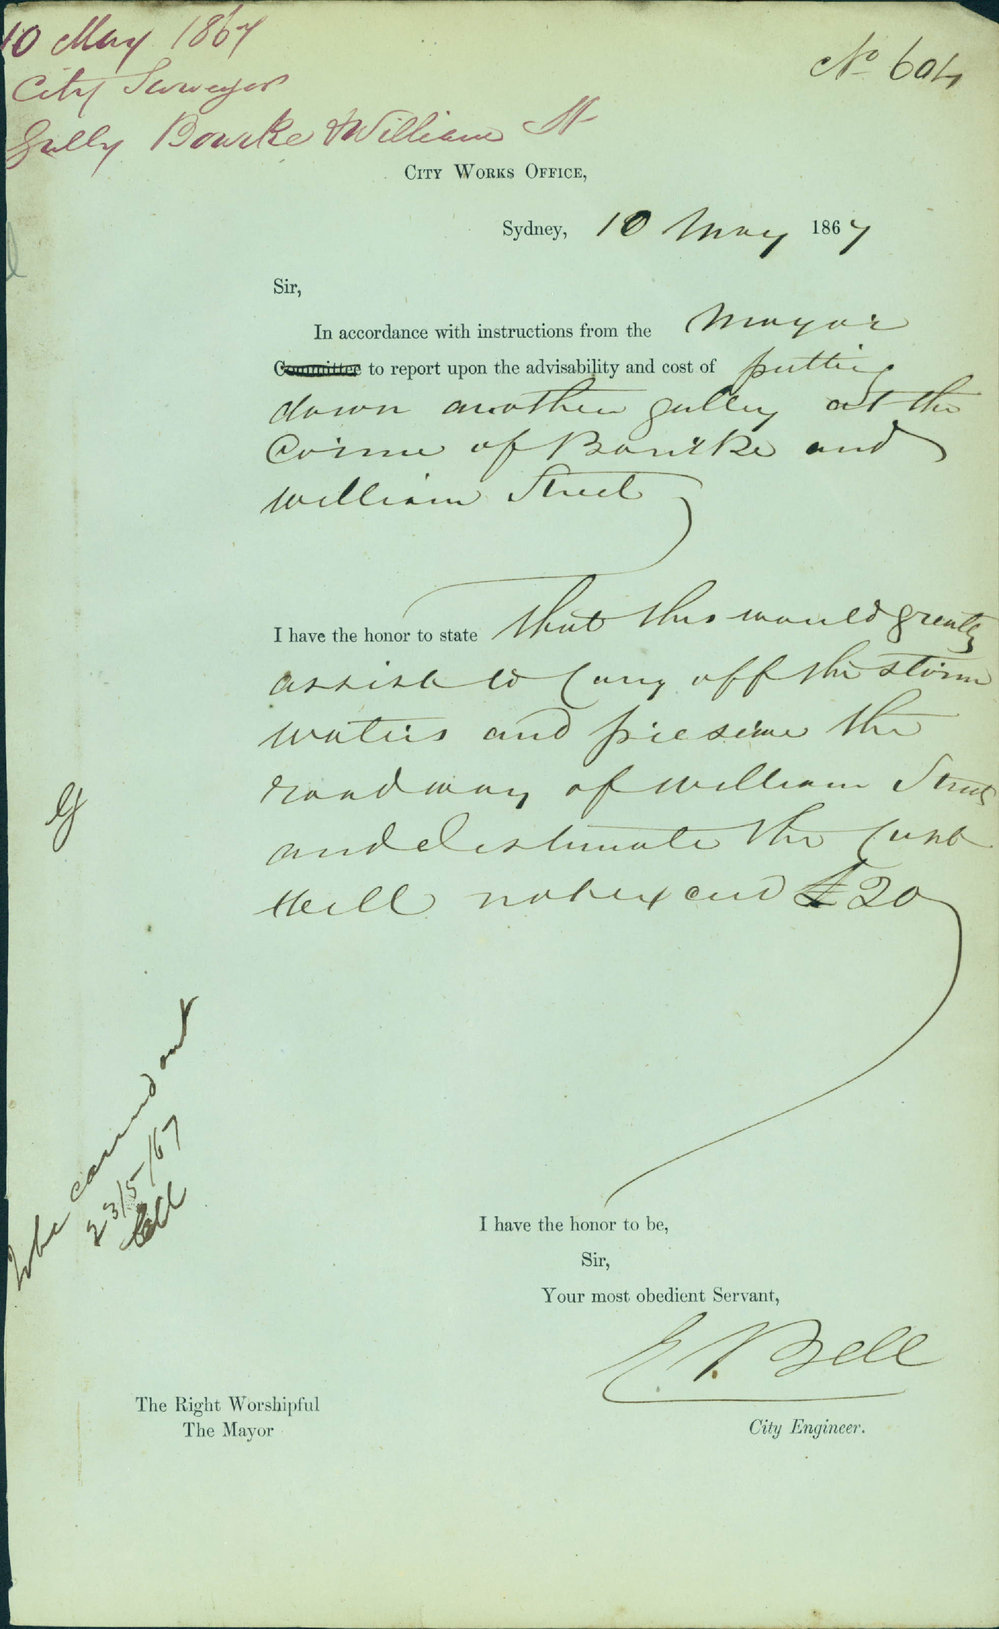 10 May 1867
City Surveyor
Gully Bourke & William St
No 604
CITY WORKS OFFICE,
Sydney, 10 May 1867
Sir,
In accordance with instructions from the Mayor
Committee to report upon the advisability and cost of putting
down another gulley at the
Corner of Bourke and
William Street
I have the honor to state that this would greatly
assist to Carry off the storm
waters and preserve the
roadway of William Street
and I estimate the Cost
will not exceed £20
G
To be carried out
23/5/67
I have the honor to be,
Sir,
Your most obedient Servant,
E. Bell
City Engineer.
The Right Worshipful
The Mayor